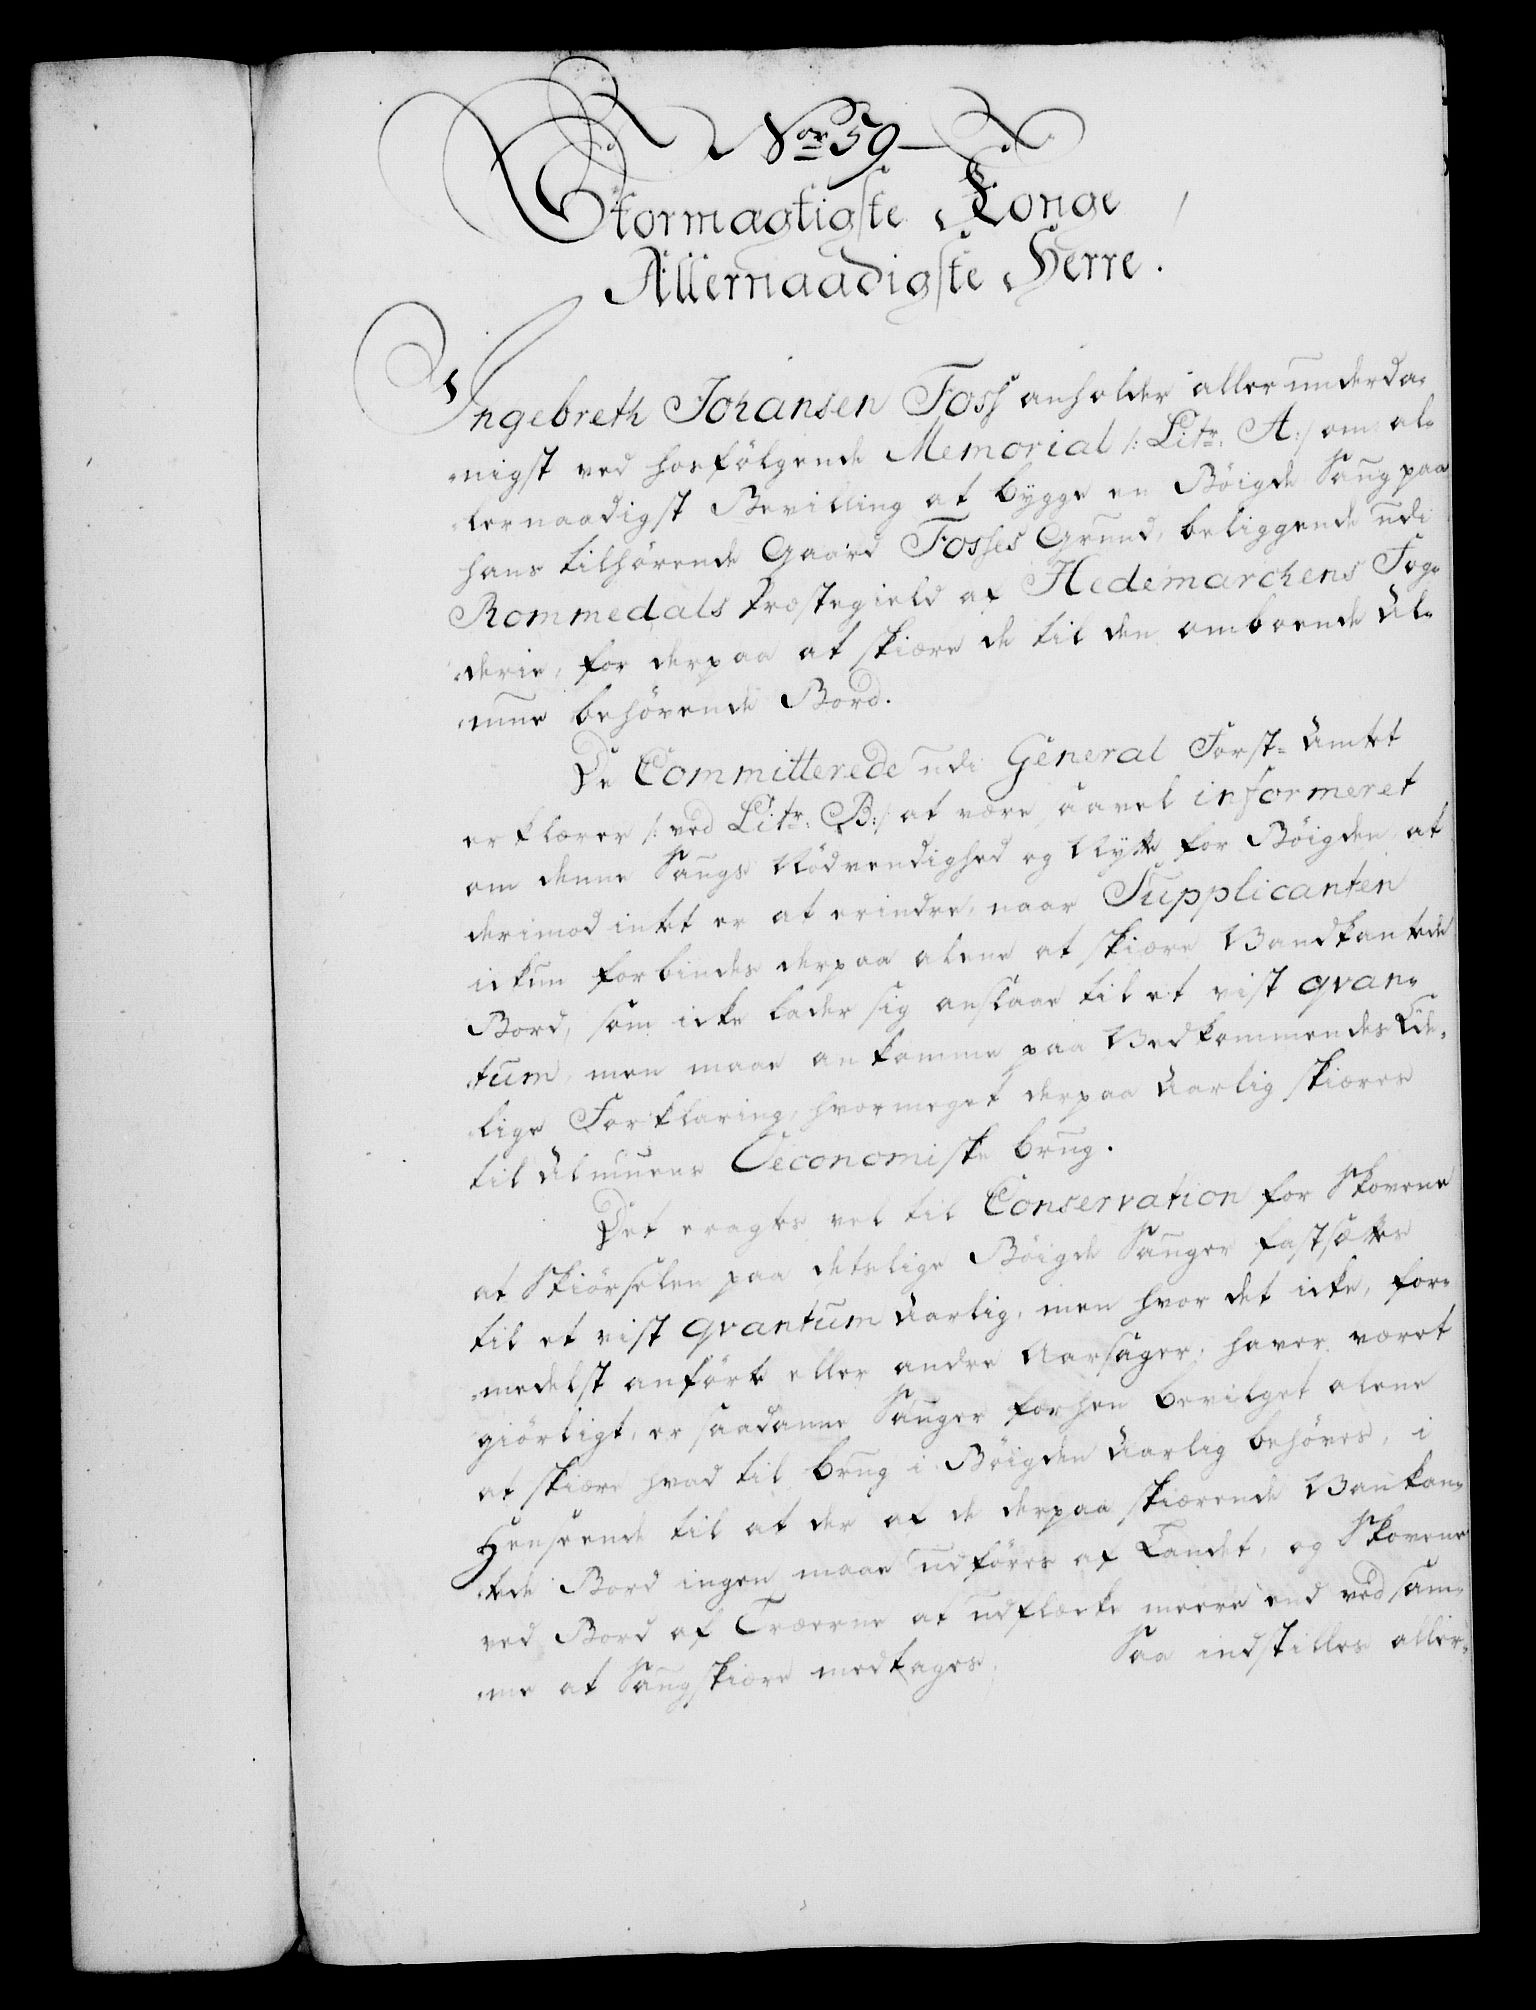 Nor 59
Stormagtigste Konge
Allernaadigste Herre.
Ingebreth Johansen Foss anholder allerunderda-
nigst ved hosfölgende Memorial /: Litr: A:/ om al-
lernaadigst Bevilling at bygge en Böigde Saug paa
hans tilhörende Gaard Fosses Grund, beliggende udi
Rommedals Præstegield af Hedemarchens Fog-
derie, for derpaa at skiære de til den omboende Al-
mue behövende Bord.
De Committerede udi General Forst-Amtet
erklærer /: ved Litr: B:/ at være saavel informeret
om denne Saugs Nödvendighed og Nÿtte for Böigden, at
derimod intet er at erindre, naar Supplicanten
ickun forbindes derpaa alene at skiære Vandkantede
Bord, som icke lader sig anslaae til et vist qvan-
tum, men maae ankomme paa Vedkommendes Ede-
lige Forklaring, hvormeget derpaa Aarlig skiæres
til Almuens Oeconomiske brug.
Det eragtes vel til Conservation for Skovene
at Skiörselen paa detslige Böigde Sauger fastsættes
til et vist qvantum Aarlig, men hvor det icke, for-
medelst anförte eller andre Aarsager, haver været
giörligt, er saadanne Sauger forhen bevilget alene
at skiære hvad til brug i Böigden Aarlig behöves, i
Henseende til at der af de derpaa skiærende Vankan-
tede Bord ingen maae udföres af Landet, og Skovene
ved Bord af Træerne at udflække meere end ved sam-
me at Saugskiære medtages. Saa indstilles aller-